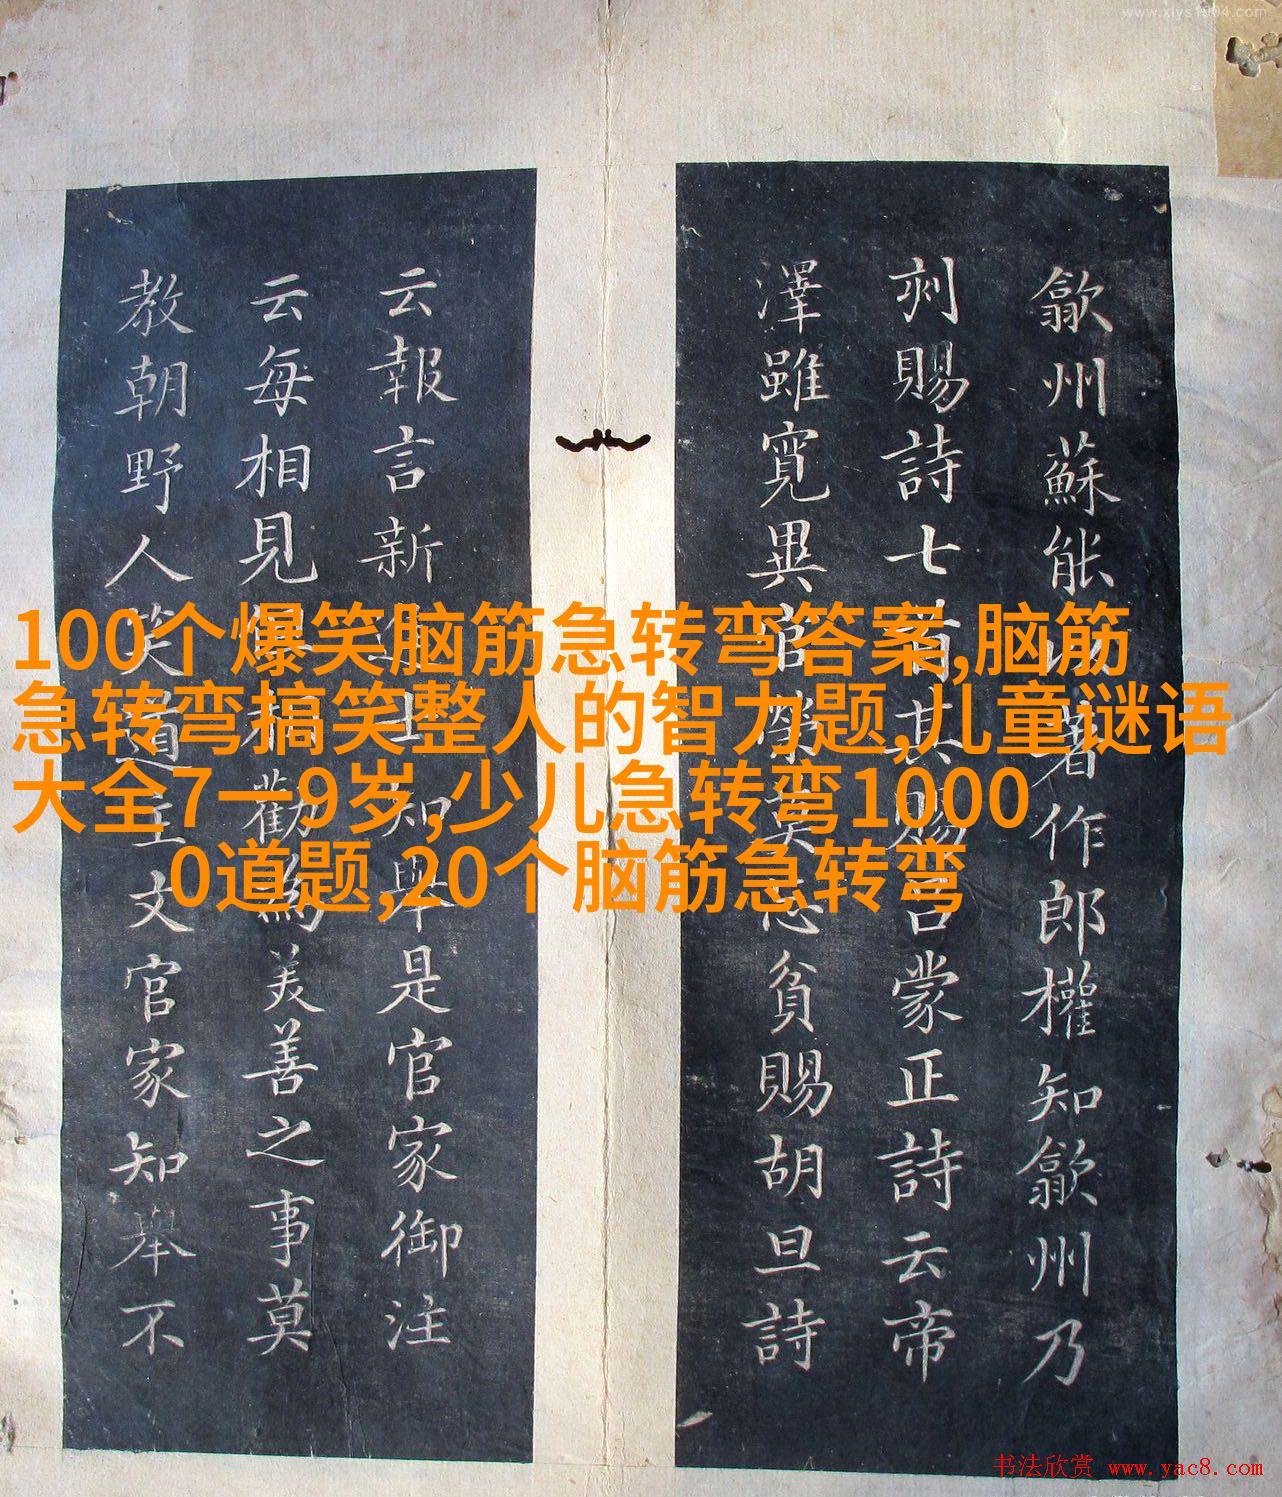 www.xlys1904.com
歙州蘇能
著作郎權知歙州乃
刻賜詩七首其賜
蒙正詩云帝
澤雖寬異
貧賜胡旦詩
云報言新
知舉是官家御注
云每相見
勸為美善之事莫
教朝野人笑道
文官家知舉不
100个爆笑脑筋急转弯答案,脑筋
急转弯搞笑整人的智力题,儿童谜语
大全7一9岁,少儿急转弯1000
0道题,20个脑筋急转弯
书法欣赏 www.yac8.com